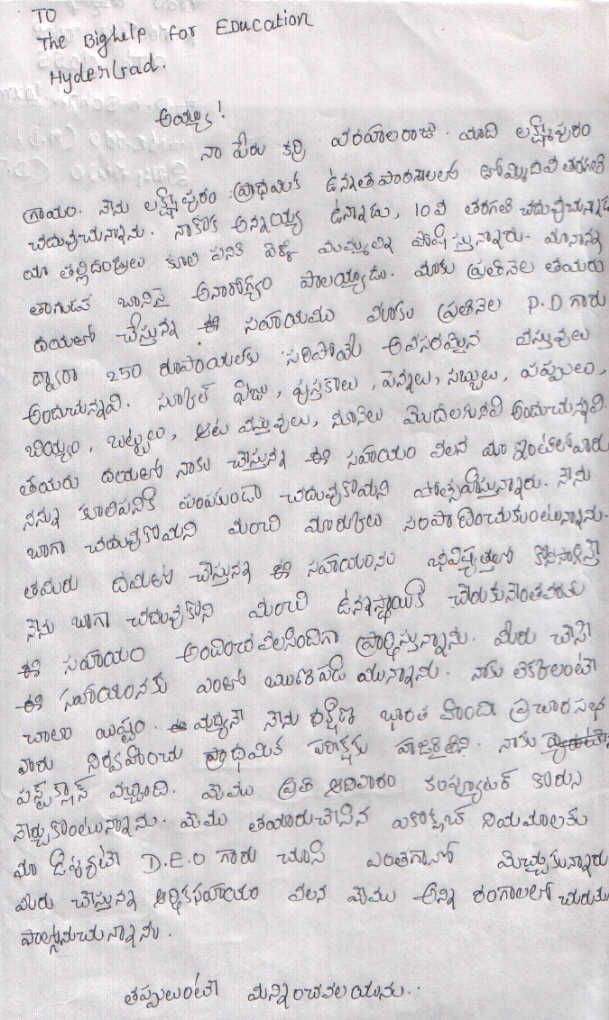 TO
The Bighelp for Education
Hyderabad.
అయ్యా!
నా పేరు కర్రి వరహాలరాజు. మాది లక్ష్మీపురం
గ్రామం. నేను లక్ష్మీపురం ప్రాథమిక ఉన్నత పాఠశాలలో తొమ్మిదివ తరగతి
చదువుచున్నాను. నాకొక అన్నయ్య ఉన్నాడు, 10వ తరగతి చదువుచున్నాడు
మా తల్లిదండ్రులు కూలి పనికి వెళ్ళి మమ్మల్ని పోషిస్తున్నారు. మానాన్న
తాగుడుకు బానిసై అనారోగ్యం పాలయ్యాడు. మాకు ప్రతినెల తమరు
దయతో చేస్తున్న ఈ సహాయము మాకు ప్రతినెల P.D గారు
ద్వారా 250 రూపాయలకు సరిపోయే అవసరమైన వస్తువులు
అందుచున్నవి. స్కూల్ ఫీజు, పుస్తకాలు, పెన్నులు, సబ్బులు, పప్పులు,
బియ్యం, బట్టలు, ఆట వస్తువులు, నూనెలు మొదలగునవి అందుచున్నవి.
తమరు దయతో నాకు చేస్తున్న ఈ సహాయం వలన మా ఇంటిలోవారు
నన్ను కూలిపనికి పంపకుండా చదువుకోమని ప్రోత్సహిస్తున్నారు. నేను
బాగా చదువుకోమని మంచి మార్కులు సంపాదించుకుంటున్నాను.
తమరు దయతో చేస్తున్న ఈ సహాయంను భవిష్యత్తులో కొనసాగిస్తే
నేను బాగా చదువుకొని మంచి ఉన్నతస్థాయికి చేరుకునేంతవరకు
ఈ సహాయం అందించవలసిందిగా ప్రార్థిస్తున్నాను. మీరు చేసే
ఈ సహాయంనకు ఎంతో ఋణపడి యున్నాను. నాకు లెక్కలంటే
చాలా యిష్టం. ఈ మధ్యనే నేను దక్షిణ భారత హిందీ ప్రచారసభ
వారు నిర్వహించు ప్రాథమిక పరీక్షకు హాజరైతిని. నాకు
ఫస్ట్ క్లాస్ వచ్చింది. మేము ప్రతి ఆదివారం కంప్యూటర్ కోర్సు
నేర్చుకొంటున్నాను. మేము తయారుచేసిన ఎకోక్లబ్ నియమాలకు
మా D.E.O గారు చూసి ఎంతగానో మెచ్చుకున్నారు
మీరు చేస్తున్న ఆర్థికసహాయం వలన మేము అన్ని రంగాలలో చురుకు
పాల్గొనుచున్నాను.
తప్పులుంటే మన్నించవలయును..